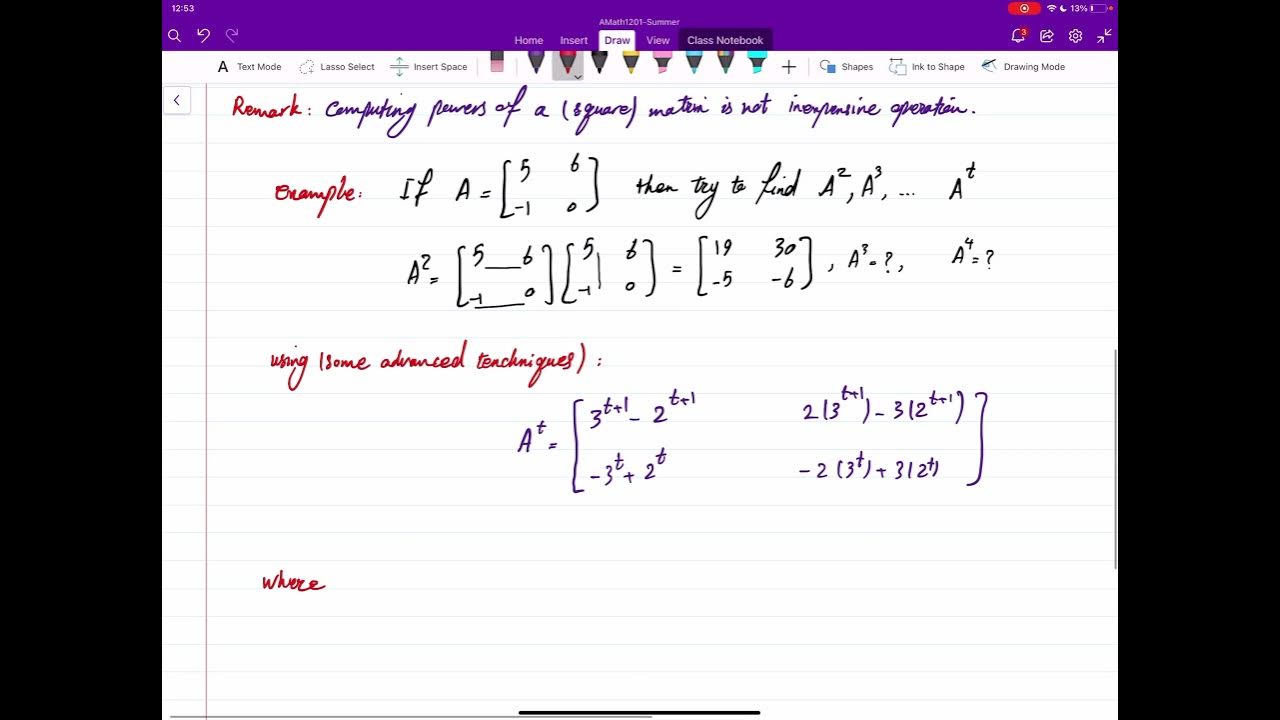 12:53
AMath1201-Summer
13%
Home Insert Draw View Class Notebook
3
A Text Mode Lasso Select Insert Space Shapes Ink to Shape Drawing Mode
Remark: Computing powers of a (square) matrix is not inexpensive operation.
Example: If A = [5 6; -1 0] then try to find A², A³, ... Aᵗ
A² = [5 6; -1 0] [5 6; -1 0] = [19 30; -5 -6], A³ = ?, A⁴ = ?
using (some advanced tenchniques):
Aᵗ = [3^{t+1} - 2^{t+1} 2(3^{t+1}) - 3(2^{t+1}); -3^t + 2^t -2(3^t) + 3(2^t)]
where